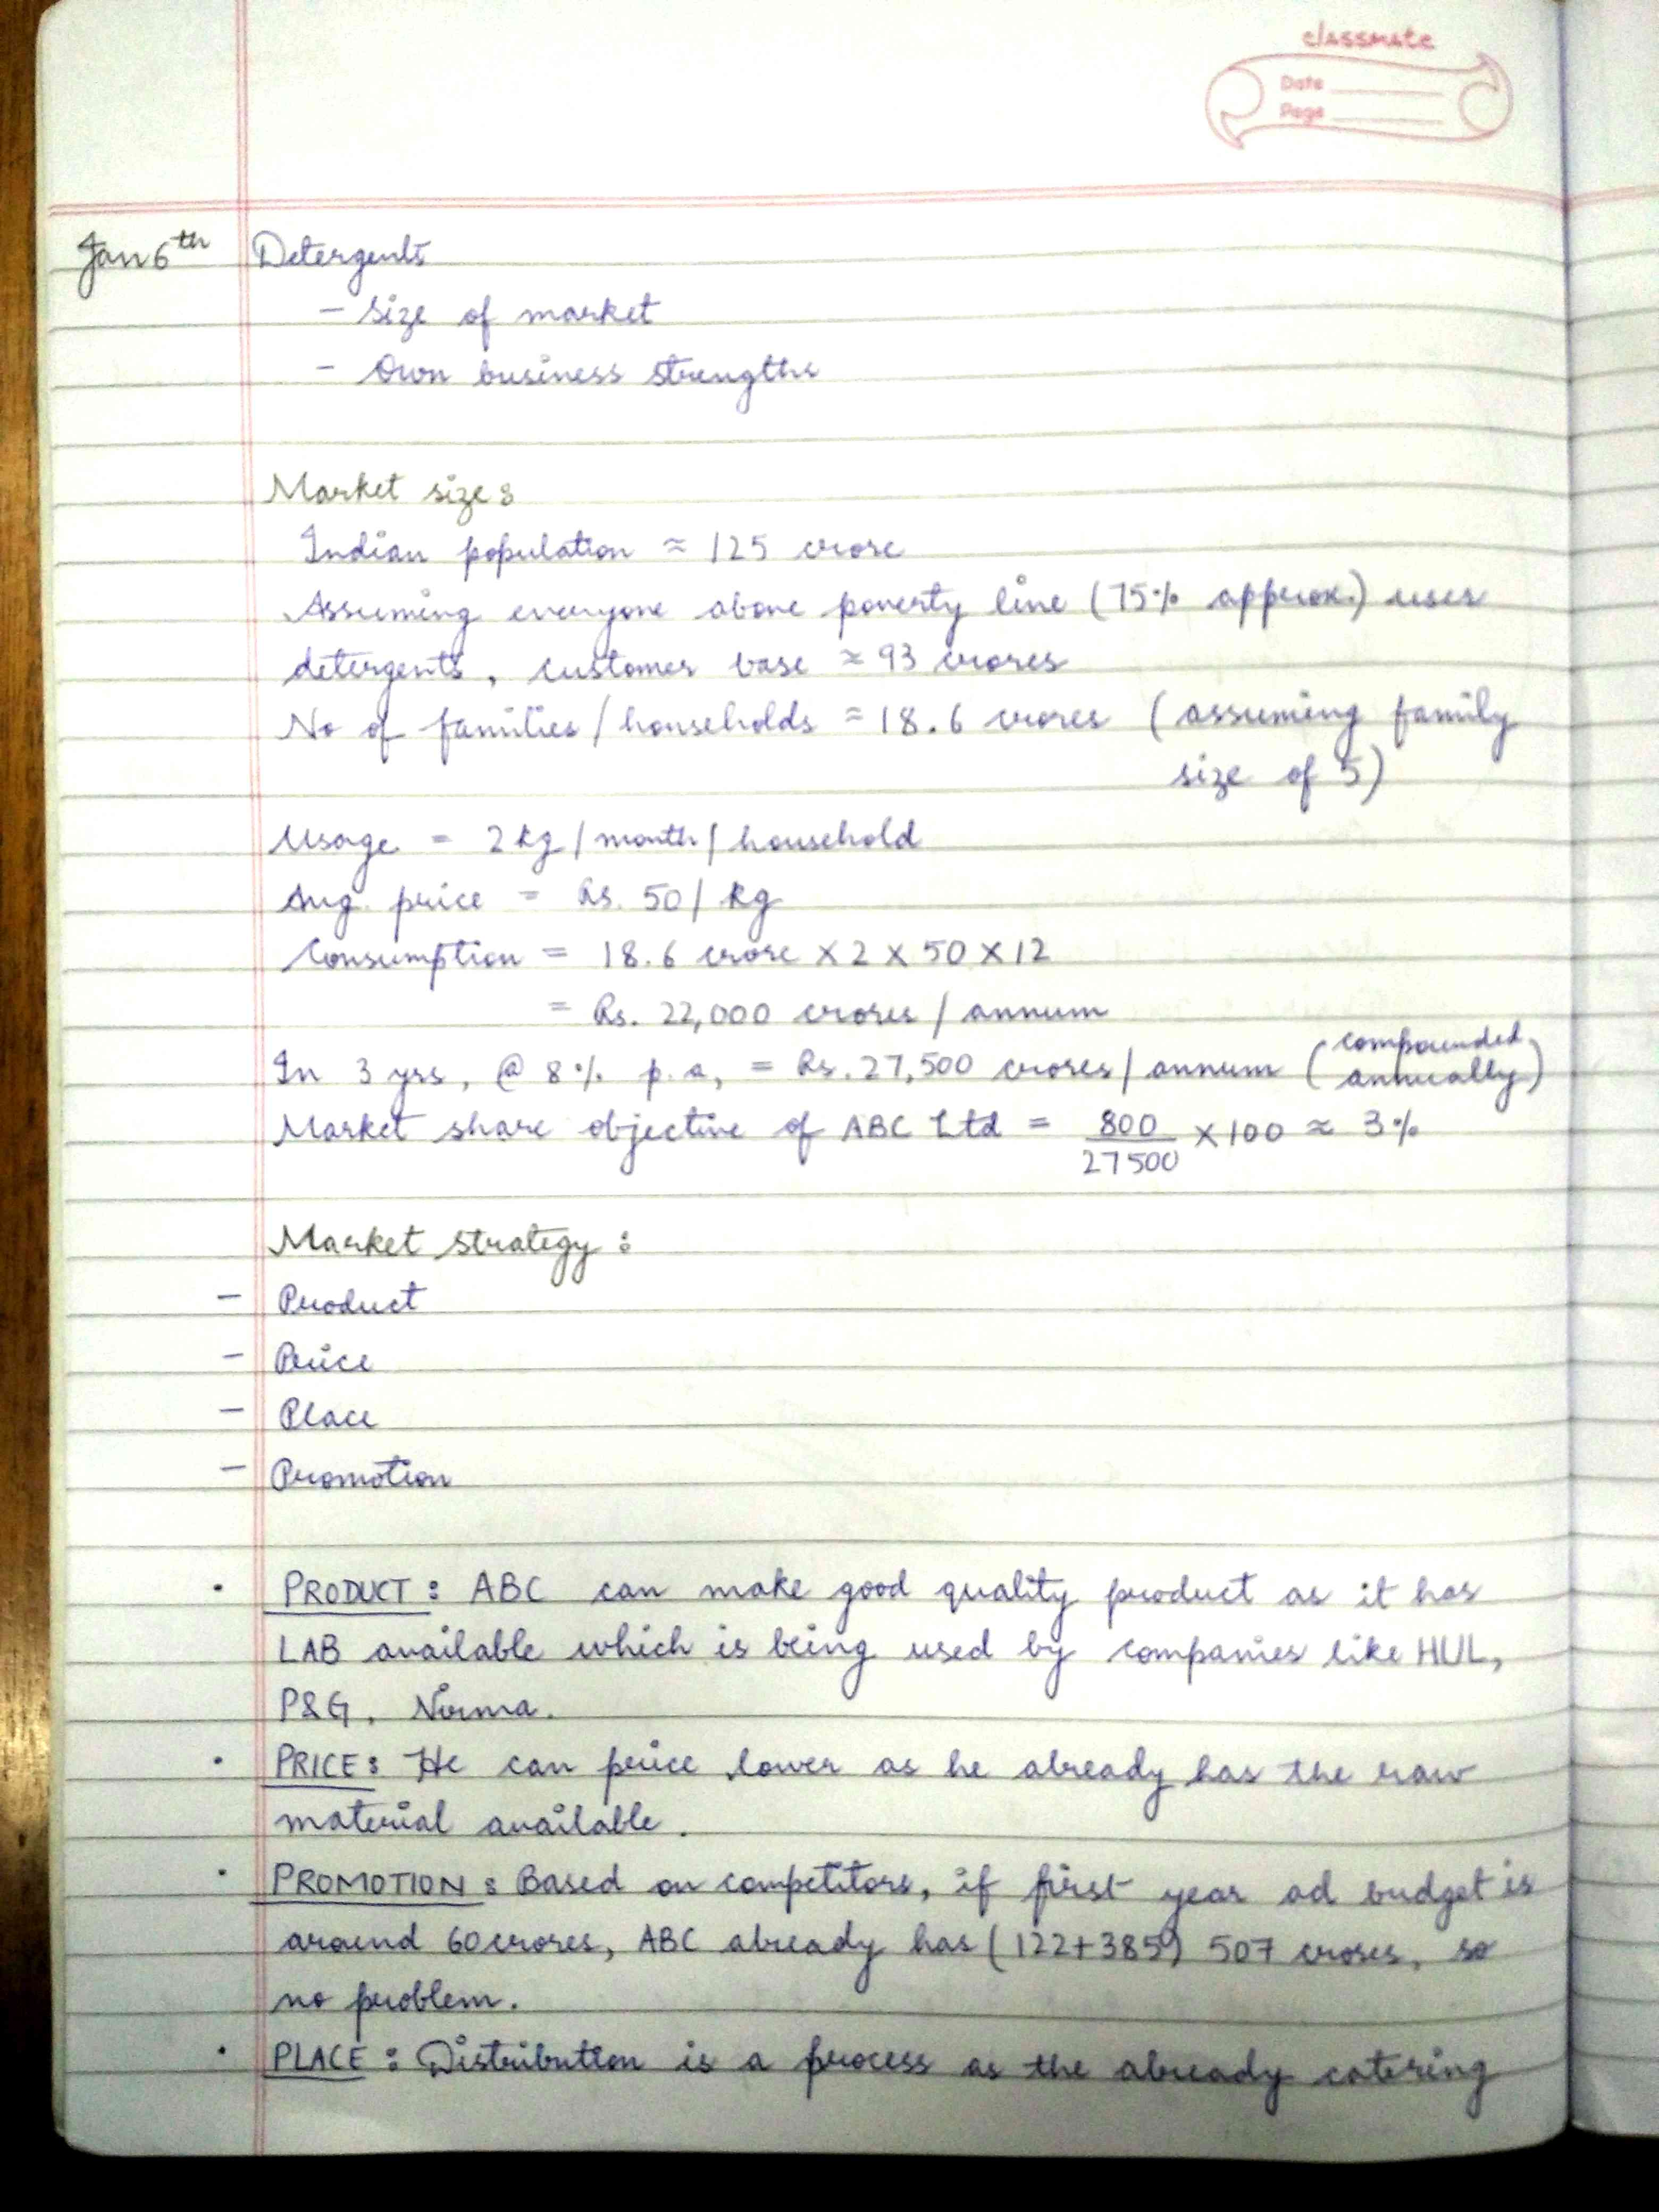 classmate
Date
Page
Jan 6th Detergents
- Size of market
- Own business strengths
Market size:
Indian population ≈ 125 crore
Assuming everyone above poverty line (75% approx.) uses
detergents, customer base ≈ 93 crores
No of families/households = 18.6 crores (assuming family
size of 5)
Usage = 2 kg/month/household
Avg. price = Rs. 50/kg
Consumption = 18.6 crore × 2 × 50 × 12
= Rs. 22,000 crores/annum
In 3 yrs, @ 8% p.a, = Rs. 27,500 crores/annum (compounded annually)
Market share objective of ABC Ltd = 800/27500 × 100 ≈ 3%
Market strategy:
- Product
- Price
- Place
- Promotion
• PRODUCT: ABC can make good quality product as it has
LAB available which is being used by companies like HUL,
P&G, Nirma.
• PRICE: He can price lower as he already has the raw
material available.
• PROMOTION: Based on competitors, if first year ad budget is
around 60 crores, ABC already has (122+385) 507 crores, so
no problem.
• PLACE: Distribution is a process as the already catering